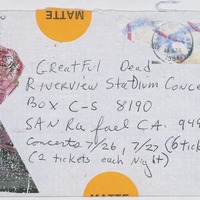 MATTE
GREATFUL Dead
RIVERVIEW StaDium Conce
BOX C-S 8190
SAN Rafael CA. 949
Concerts 7/26, 7/27 (6 tick
(2 tickets each Night)
MATTE